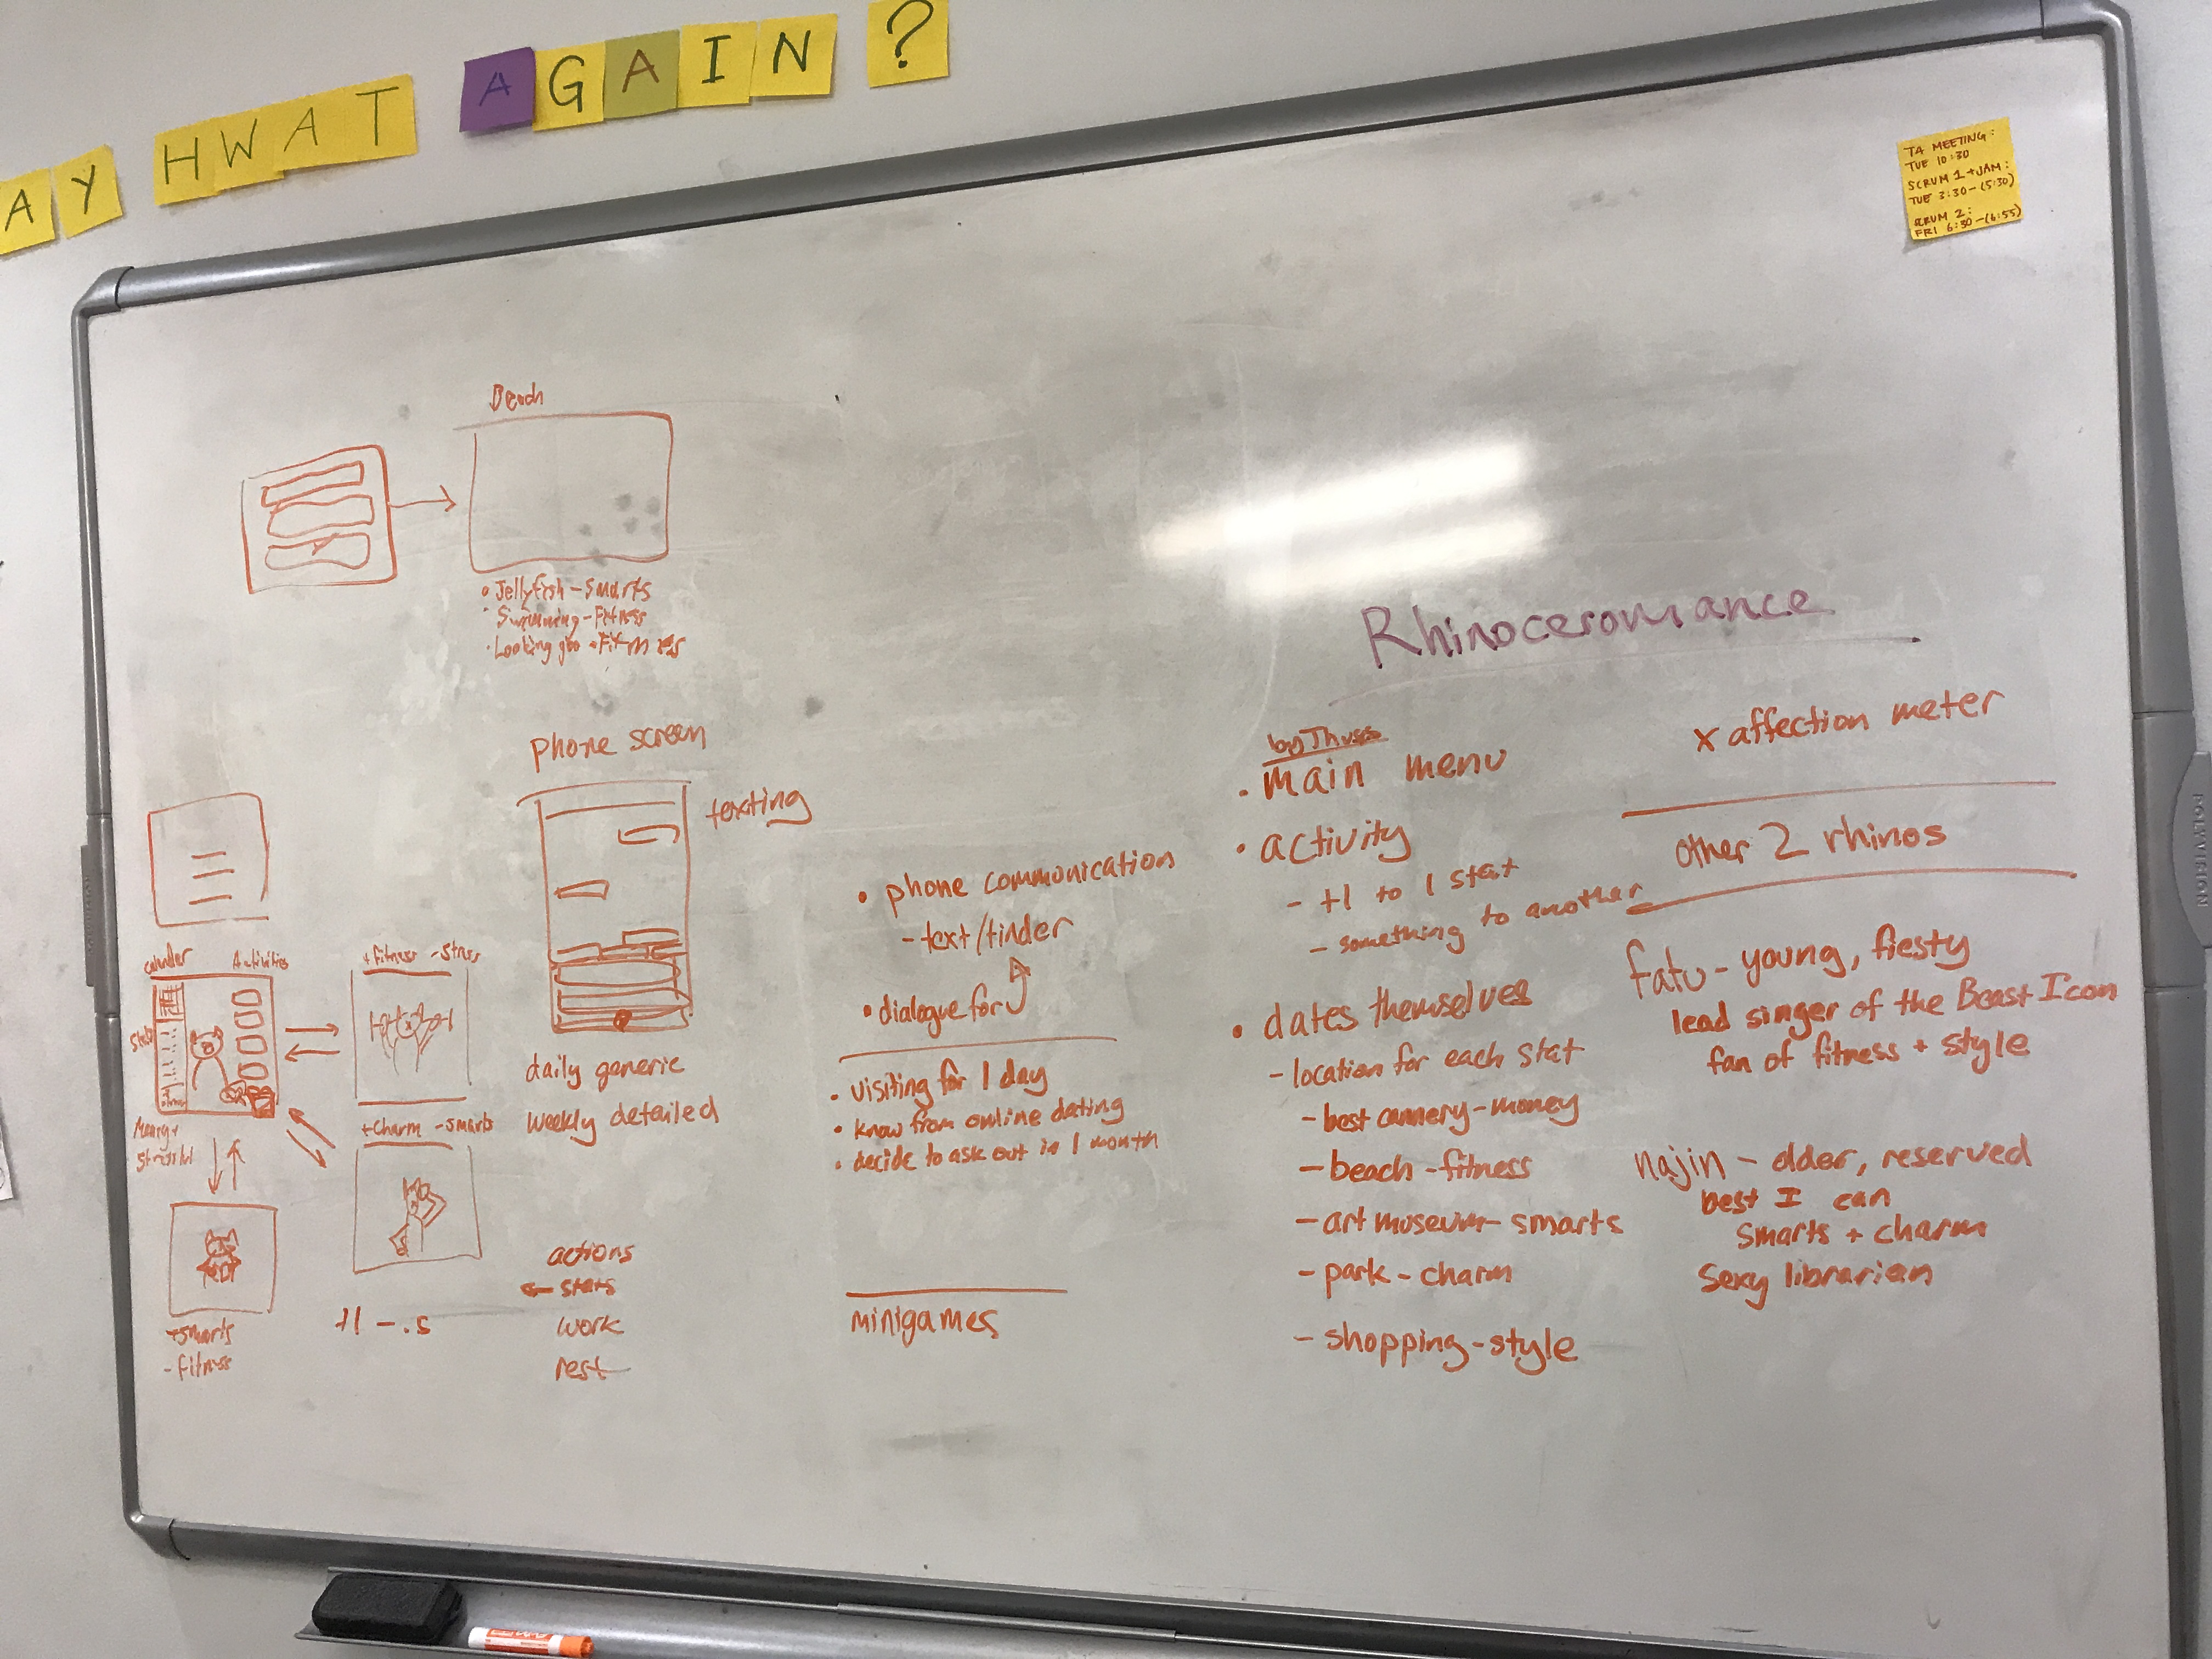 AY HWAT AGAIN?
TA MEETING:
TUE 10:30
SCRUM 1 + JAM:
TUE 3:30-(5:30)
SCRUM 2:
FRI 6:30-(6:55)
Beach
• Jellyfish - Smarts
• Swimming - Fitness
• Looking
Rhinoceromance
phone screen
texting
daily generic
weekly detailed
calender
Activities
+fitness -stress
+Charm -smarts
+smarts
-fitness
+1 -.5
actions
stats
work
rest
• phone communication
- text/tinder
• dialogue for
• visiting for 1 day
• know from online dating
• decide to ask out in 1 month
minigames
by Thurs
• main menu
• activity
- +1 to 1 stat
- something to another
• dates themselves
- location for each stat
- best cannery - money
- beach - fitness
- art museum - smarts
- park - charm
- shopping - style
x affection meter
other 2 rhinos
fatu - young, fiesty
lead singer of the Beast Icon
fan of fitness + style
najin - older, reserved
best I can
smarts + charm
sexy librarian
POLYVISION